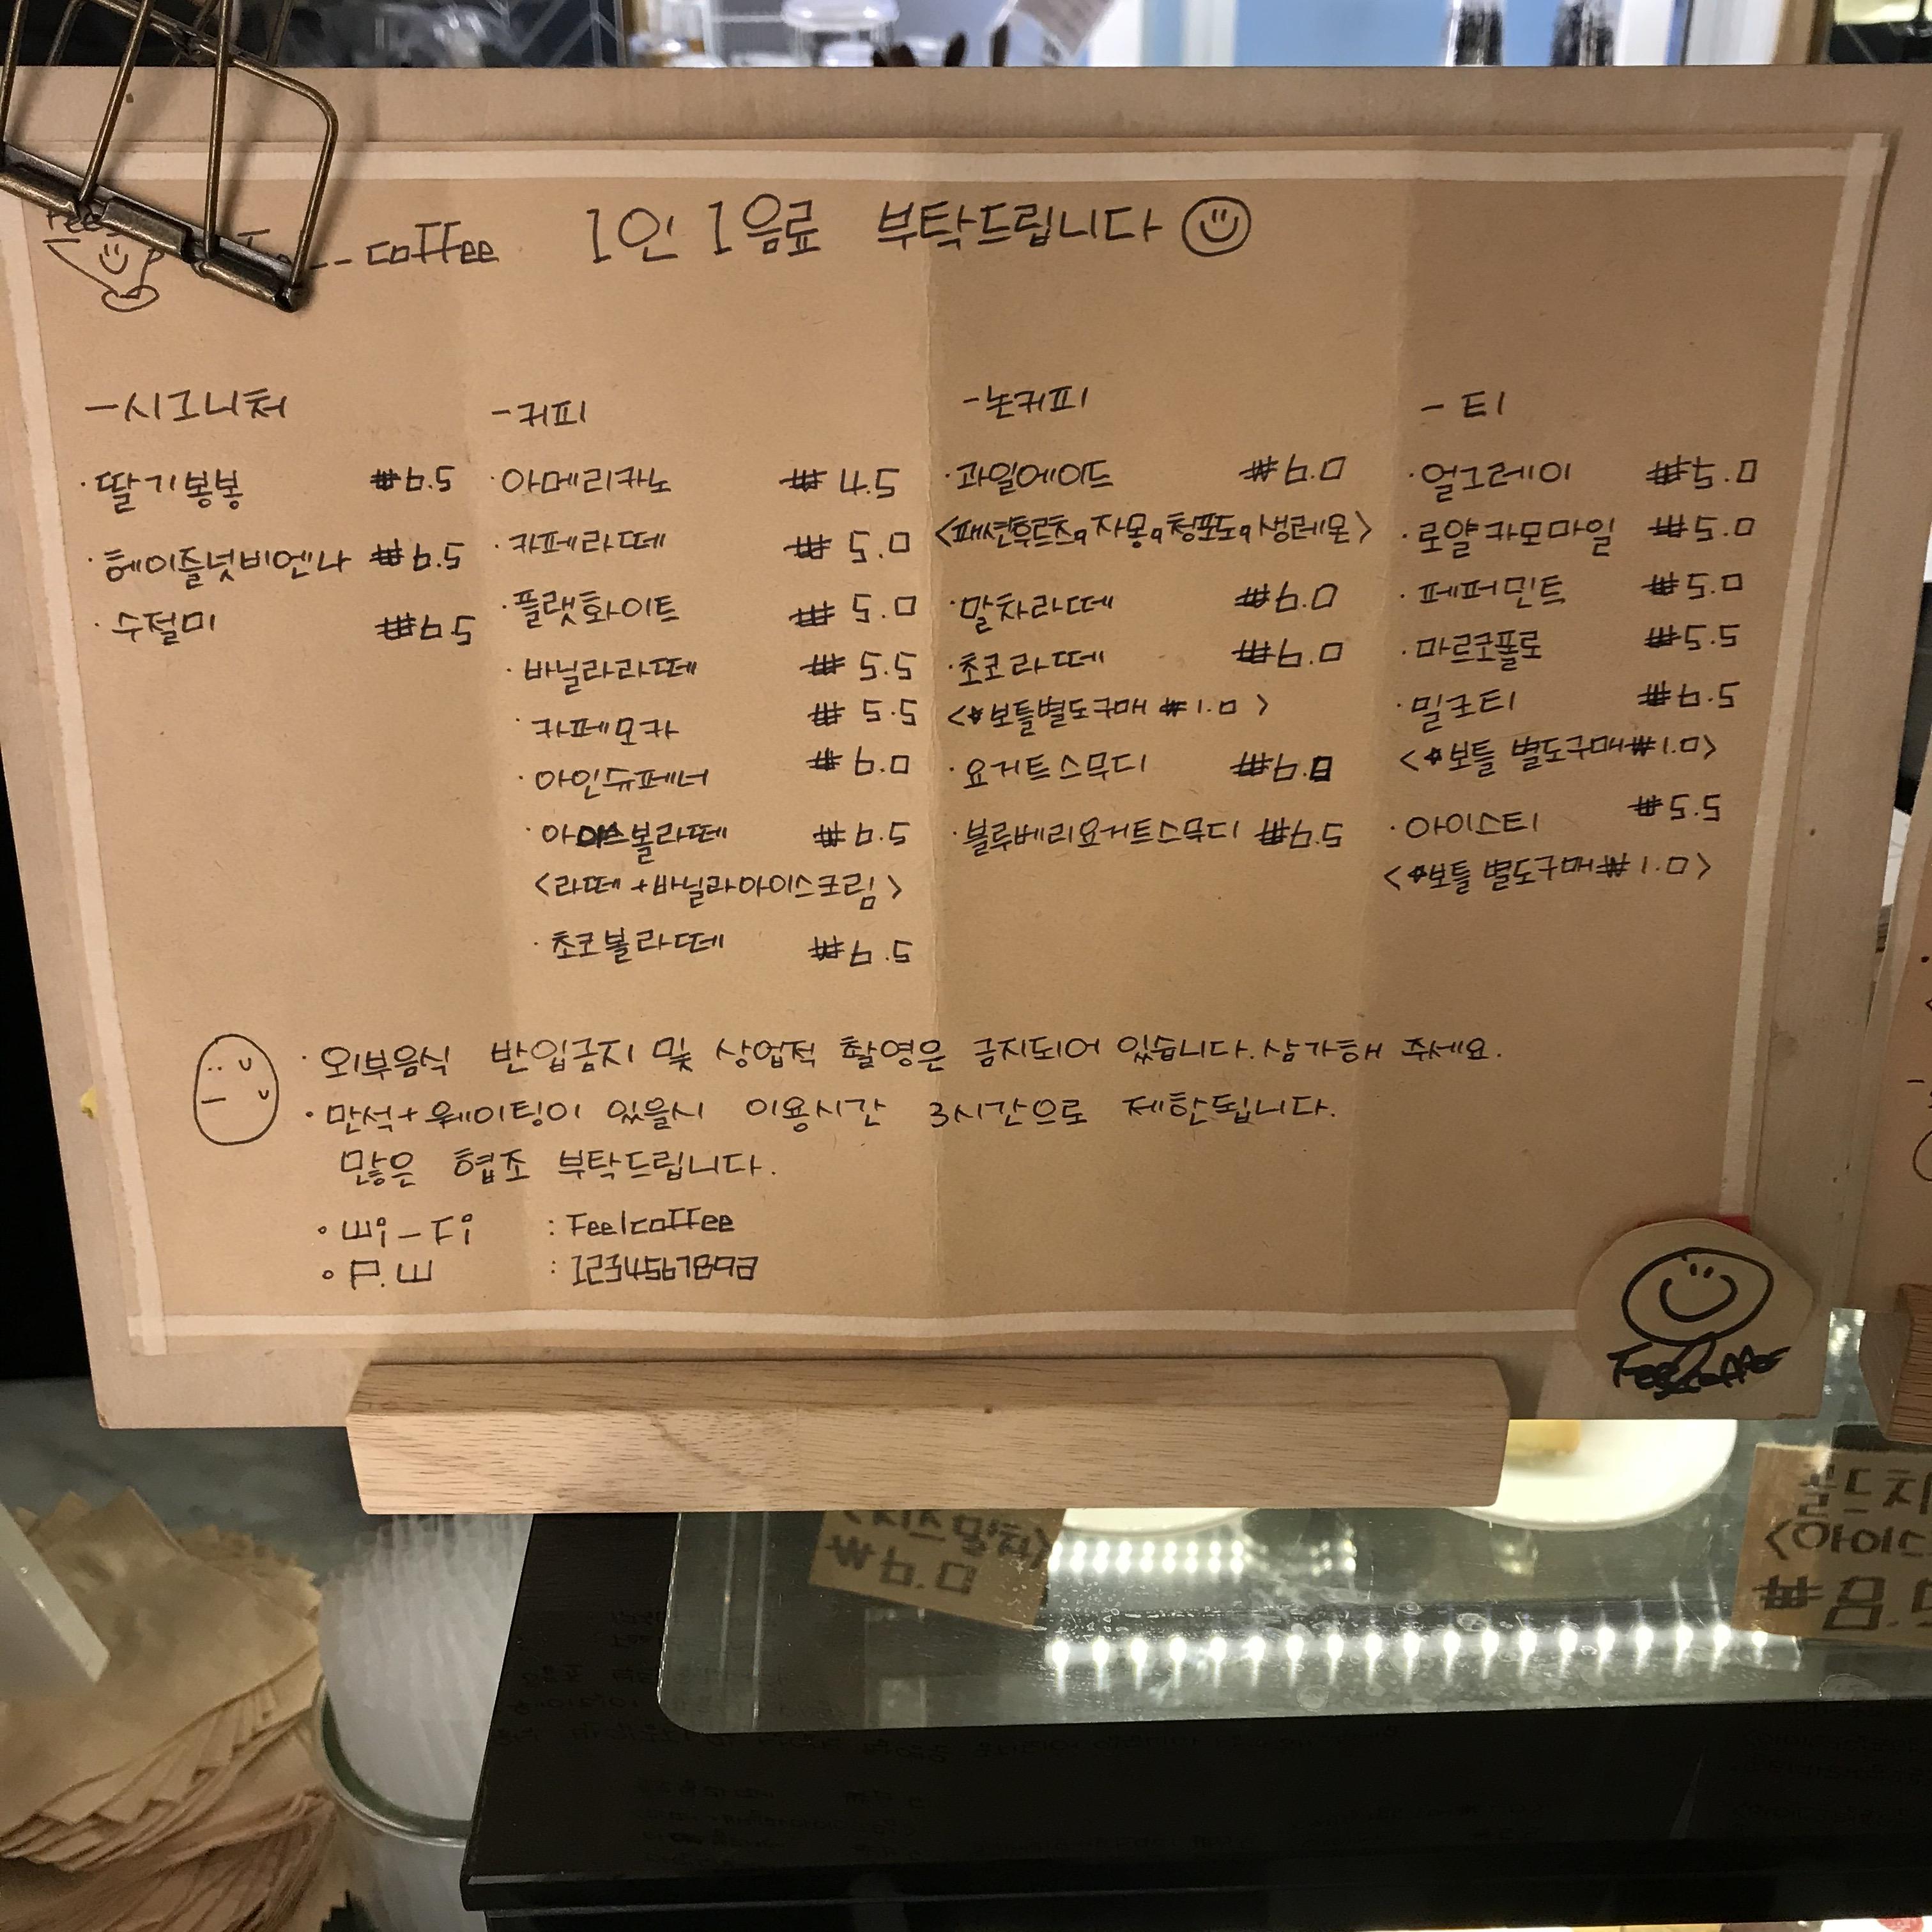 coffee 1인 1음료 부탁드립니다
-시그니처
·딸기봉봉 ₩6.5
·헤이즐넛비엔나 ₩6.5
·수절미 ₩6.5
-커피
·아메리카노 ₩4.5
·카페라떼 ₩5.0
·플랫화이트 ₩5.0
·바닐라라떼 ₩5.5
·카페모카 ₩5.5
·아인슈페너 ₩6.0
·아이스볼라떼 ₩6.5
<라떼+바닐라아이스크림>
·초코볼라떼 ₩6.5
-논커피
·과일에이드 ₩6.0
<패션후르츠, 자몽, 청포도, 생레몬>
·말차라떼 ₩6.0
·초코라떼 ₩6.0
<☆보틀별도구매 ₩1.0>
·요거트스무디 ₩6.0
·블루베리요거트스무디 ₩6.5
-티
·얼그레이 ₩5.0
·로얄카모마일 ₩5.0
·페퍼민트 ₩5.0
·마르코폴로 ₩5.5
·밀크티 ₩6.5
<☆보틀 별도구매₩1.0>
·아이스티 ₩5.5
<☆보틀 별도구매₩1.0>
·외부음식 반입금지 및 상업적 촬영은 금지되어 있습니다. 삼가해 주세요.
·만석+웨이팅이 있을시 이용시간 3시간으로 제한됩니다.
많은 협조 부탁드립니다.
·Wi-Fi : Feelcoffee
·P.W : 1234567890
Feelcoffee
₩6.0